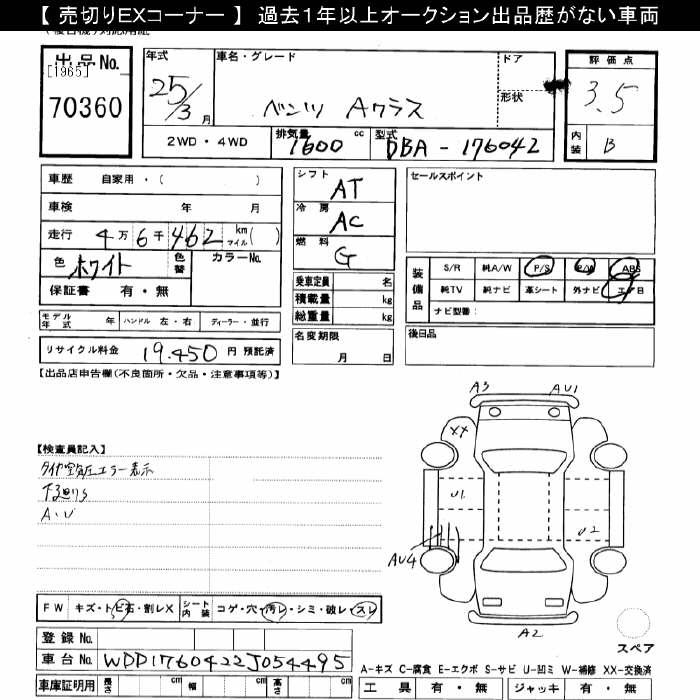 【 売切りEXコーナー 】 過去１年以上オークション出品歴がない車両
出品No.
[1965]
70360
年式
25/3 月
車名・グレード
ベンツ Aクラス
ドア
形状
評価点
3.5
内装
B
2WD・4WD
排気量
1600 cc
型式
DBA - 176042
車歴 自家用・( )
車検 年 月
走行 4万 6千 462 km マイル( )
色 ホワイト 色替 カラーNo.
保証書 有・無
シフト AT
冷房 AC
燃料 G
乗車定員 名
積載量 kg
総重量 kg
セールスポイント
装備品
S/R 純A/W P/S P/W ABS
純TV 純ナビ 革シート 外ナビ エアB
ナビ型番：
モデル年式 年 ハンドル 左・右 ディーラー・並行
リサイクル料金 19.450 円 預託済
名変期限 月 日
後日品
【出品店申告欄(不良箇所・欠品・注意事項等)】
【検査員記入】
タイヤ空気圧エラー表示
下廻りS
A、U
A3 AU1
XX
U1
U2
AU4
A2
FW キズ・トビ石・割レX シート内装 コゲ・穴・汚レ・シミ・破レ・スレ
登録No.
車台No. WDD1760422J054495
車庫証明用 長さ cm 幅 cm 高さ cm
スペア
A-キズ C-腐食 E-エクボ S-サビ U-凹ミ W-補修 XX-交換済
工具 有・無 ジャッキ 有・無